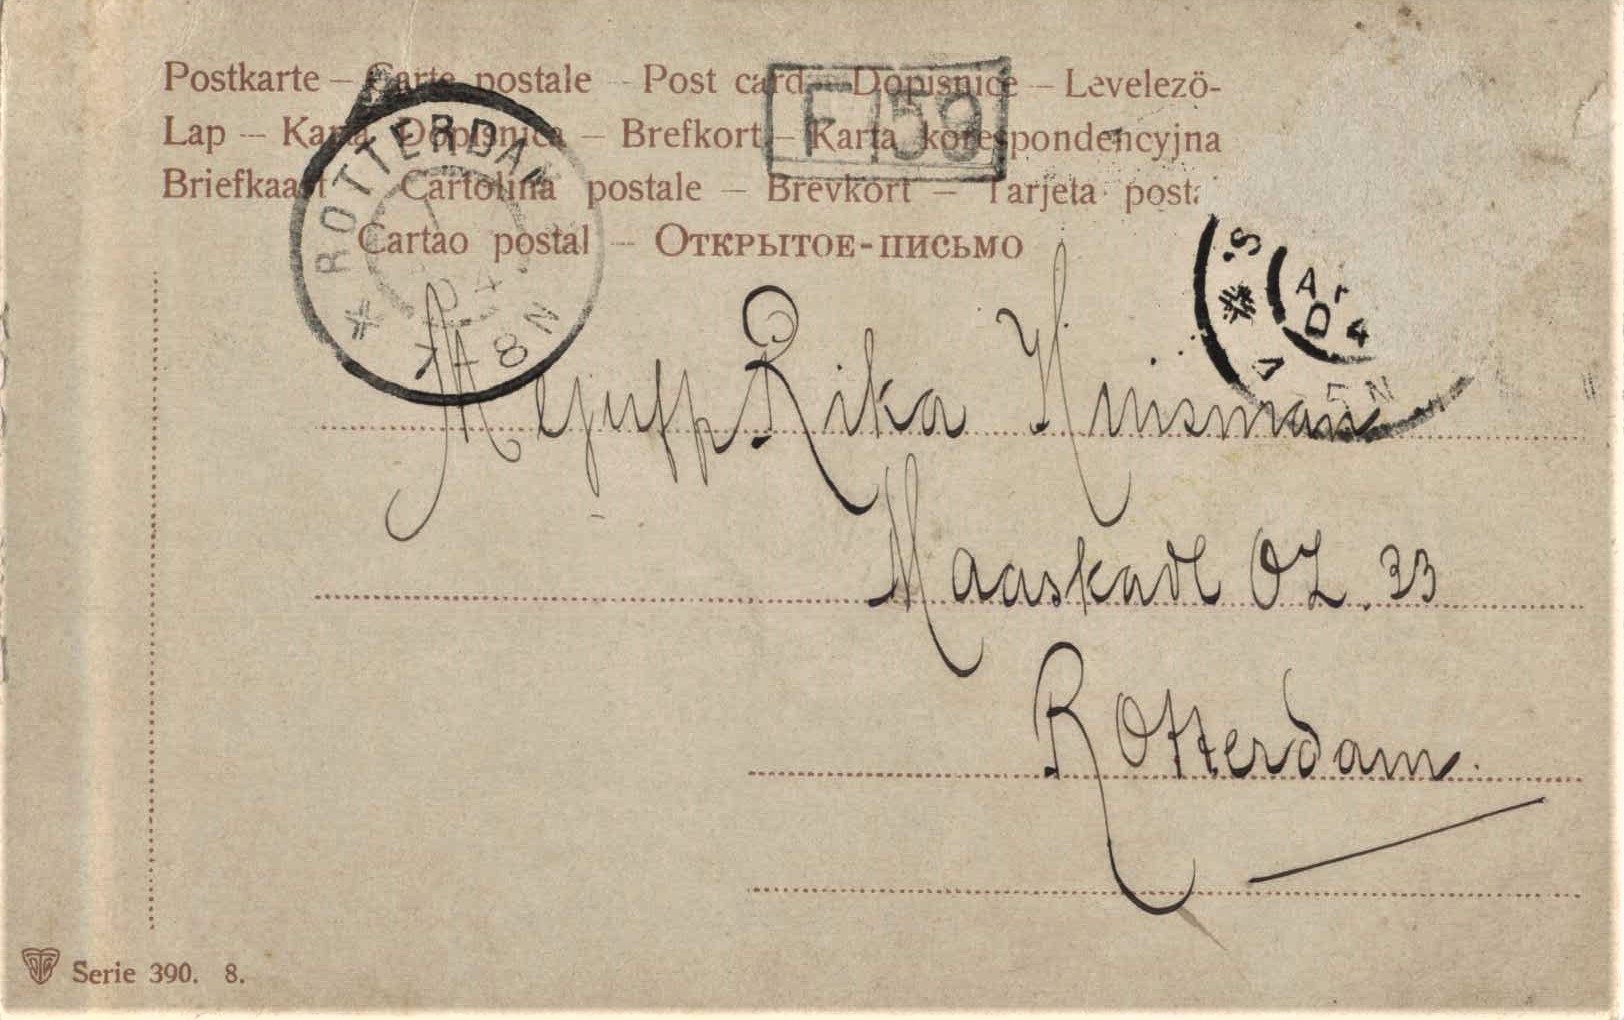 Postkarte – Carte postale – Post card – Dopisnice – Levelező-
Lap – Karta Dopisnica – Brefkort – Karta korespondencyjna
Briefkaart – Cartolina postale – Brevkort – Tarjeta posta
Cartao postal – Открытое-письмо
F 59
ROTTERDAM
8
N
Mejuff Rika Huisman
Maaskade OZ. 33
Rotterdam.
Serie 390. 8.